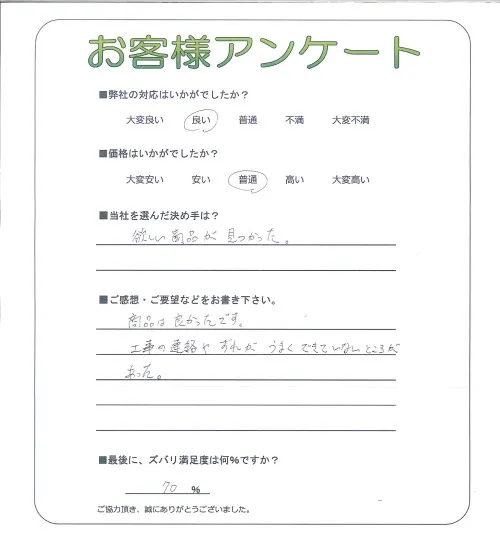 お客様アンケート
■弊社の対応はいかがでしたか？
大変良い 良い 普通 不満 大変不満
■価格はいかがでしたか？
大変安い 安い 普通 高い 大変高い
■当社を選んだ決め手は？
欲しい商品が見つかった。
■ご感想・ご要望などをお書き下さい。
商品は良かったです。
工事の連絡や ずれが うまくできていないところが
あった。
■最後に、ズバリ満足度は何%ですか？
70 %
ご協力頂き、誠にありがとうございました。